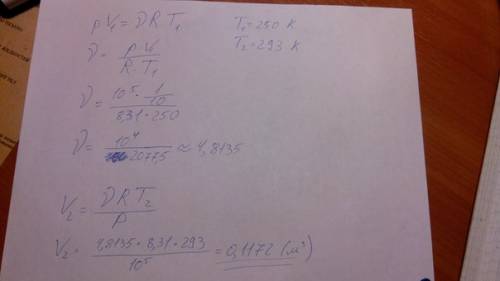 pV₁ = νRT₁
T₁ = 250 K
T₂ = 293 K
ν = pV₁ / R·T₁
ν = 10⁵ · 1/10 / 8,31 · 250
ν = 10⁴ / 2077,5 ≈ 4,8135
V₂ = νRT₂ / p
V₂ = 4,8135 · 8,31 · 293 / 10⁵ = 0,1172 (м³)